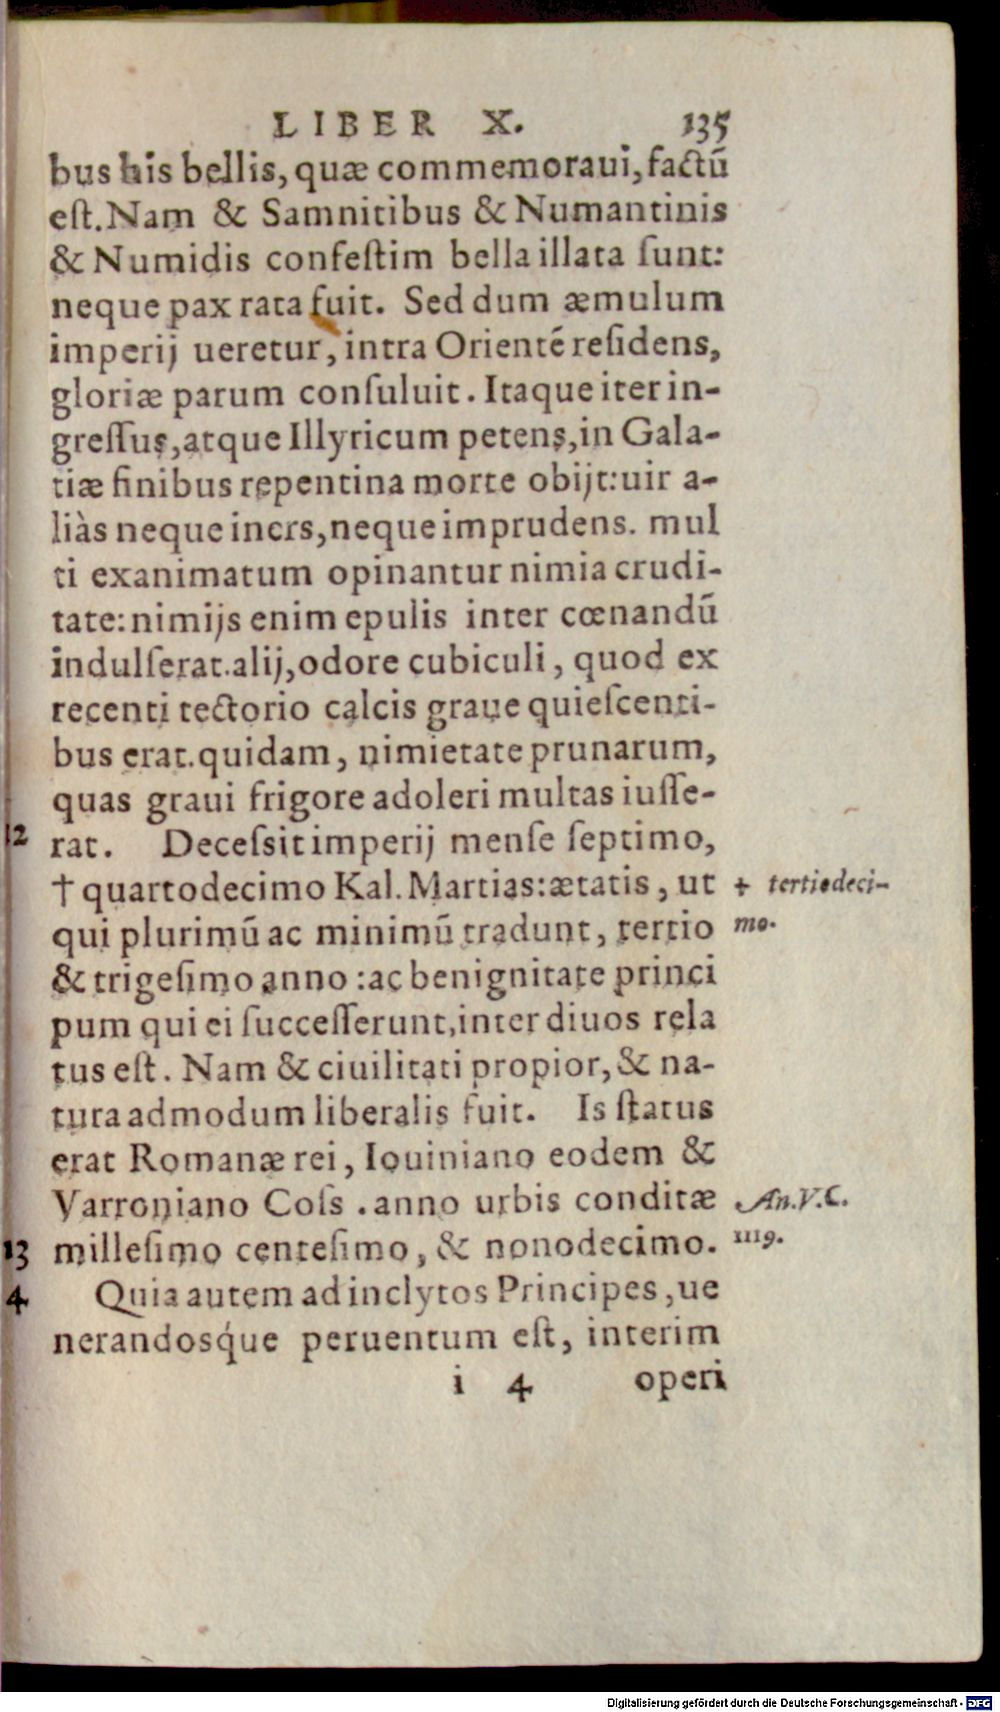 LIBER X. 135
bus his bellis, quæ commemoraui, factũ
eſt. Nam & Samnitibus & Numantinis
& Numidis confeſtim bella illata ſunt:
neque pax rata fuit. Sed dum æmulum
imperij ueretur, intra Orientẽ reſidens,
gloriæ parum conſuluit. Itaque iter in-
greſſus, atque Illyricum petens, in Gala-
tiæ finibus repentina morte obijt: uir a-
liàs neque iners, neque imprudens. mul
ti exanimatum opinantur nimia crudi-
tate: nimijs enim epulis inter cœnandũ
indulſerat. alij, odore cubiculi, quod ex
recenti tectorio calcis graue quieſcenti-
bus erat. quidam, nimietate prunarum,
quas graui frigore adoleri multas iuſſe-
12 rat. Deceſsit imperij menſe ſeptimo,
† quartodecimo Kal. Martias: ætatis, ut + tertiodeci-
qui plurimũ ac minimũ tradunt, tertio mo.
& trigeſimo anno: ac benignitate princi
pum qui ei ſucceſſerunt, inter diuos rela
tus eſt. Nam & ciuilitati propior, & na-
tura admodum liberalis fuit. Is ſtatus
erat Romanæ rei, Iouiniano eodem &
Varroniano Coſs. anno urbis conditæ An. V. C.
13 milleſimo centeſimo, & nonodecimo. 1119.
4 Quia autem ad inclytos Principes, ue
nerandosq́ue peruentum eſt, interim
i 4 operi
Digitalisierung gefördert durch die Deutsche Forschungsgemeinschaft - DFG